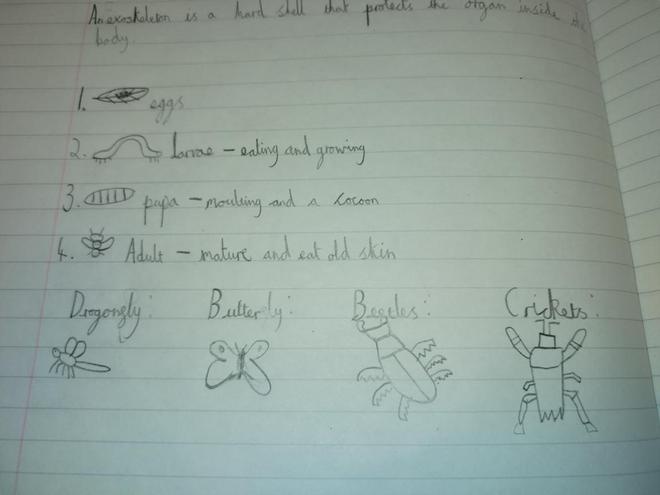 An exoskeleton is a hard shell that protects the organ inside the
body.
1. eggs
2. Larvae – eating and growing
3. pupa – moulting and a cocoon
4. Adult – mature and eat old skin
Dragonfly: Butterfly: Beetles: Crickets: